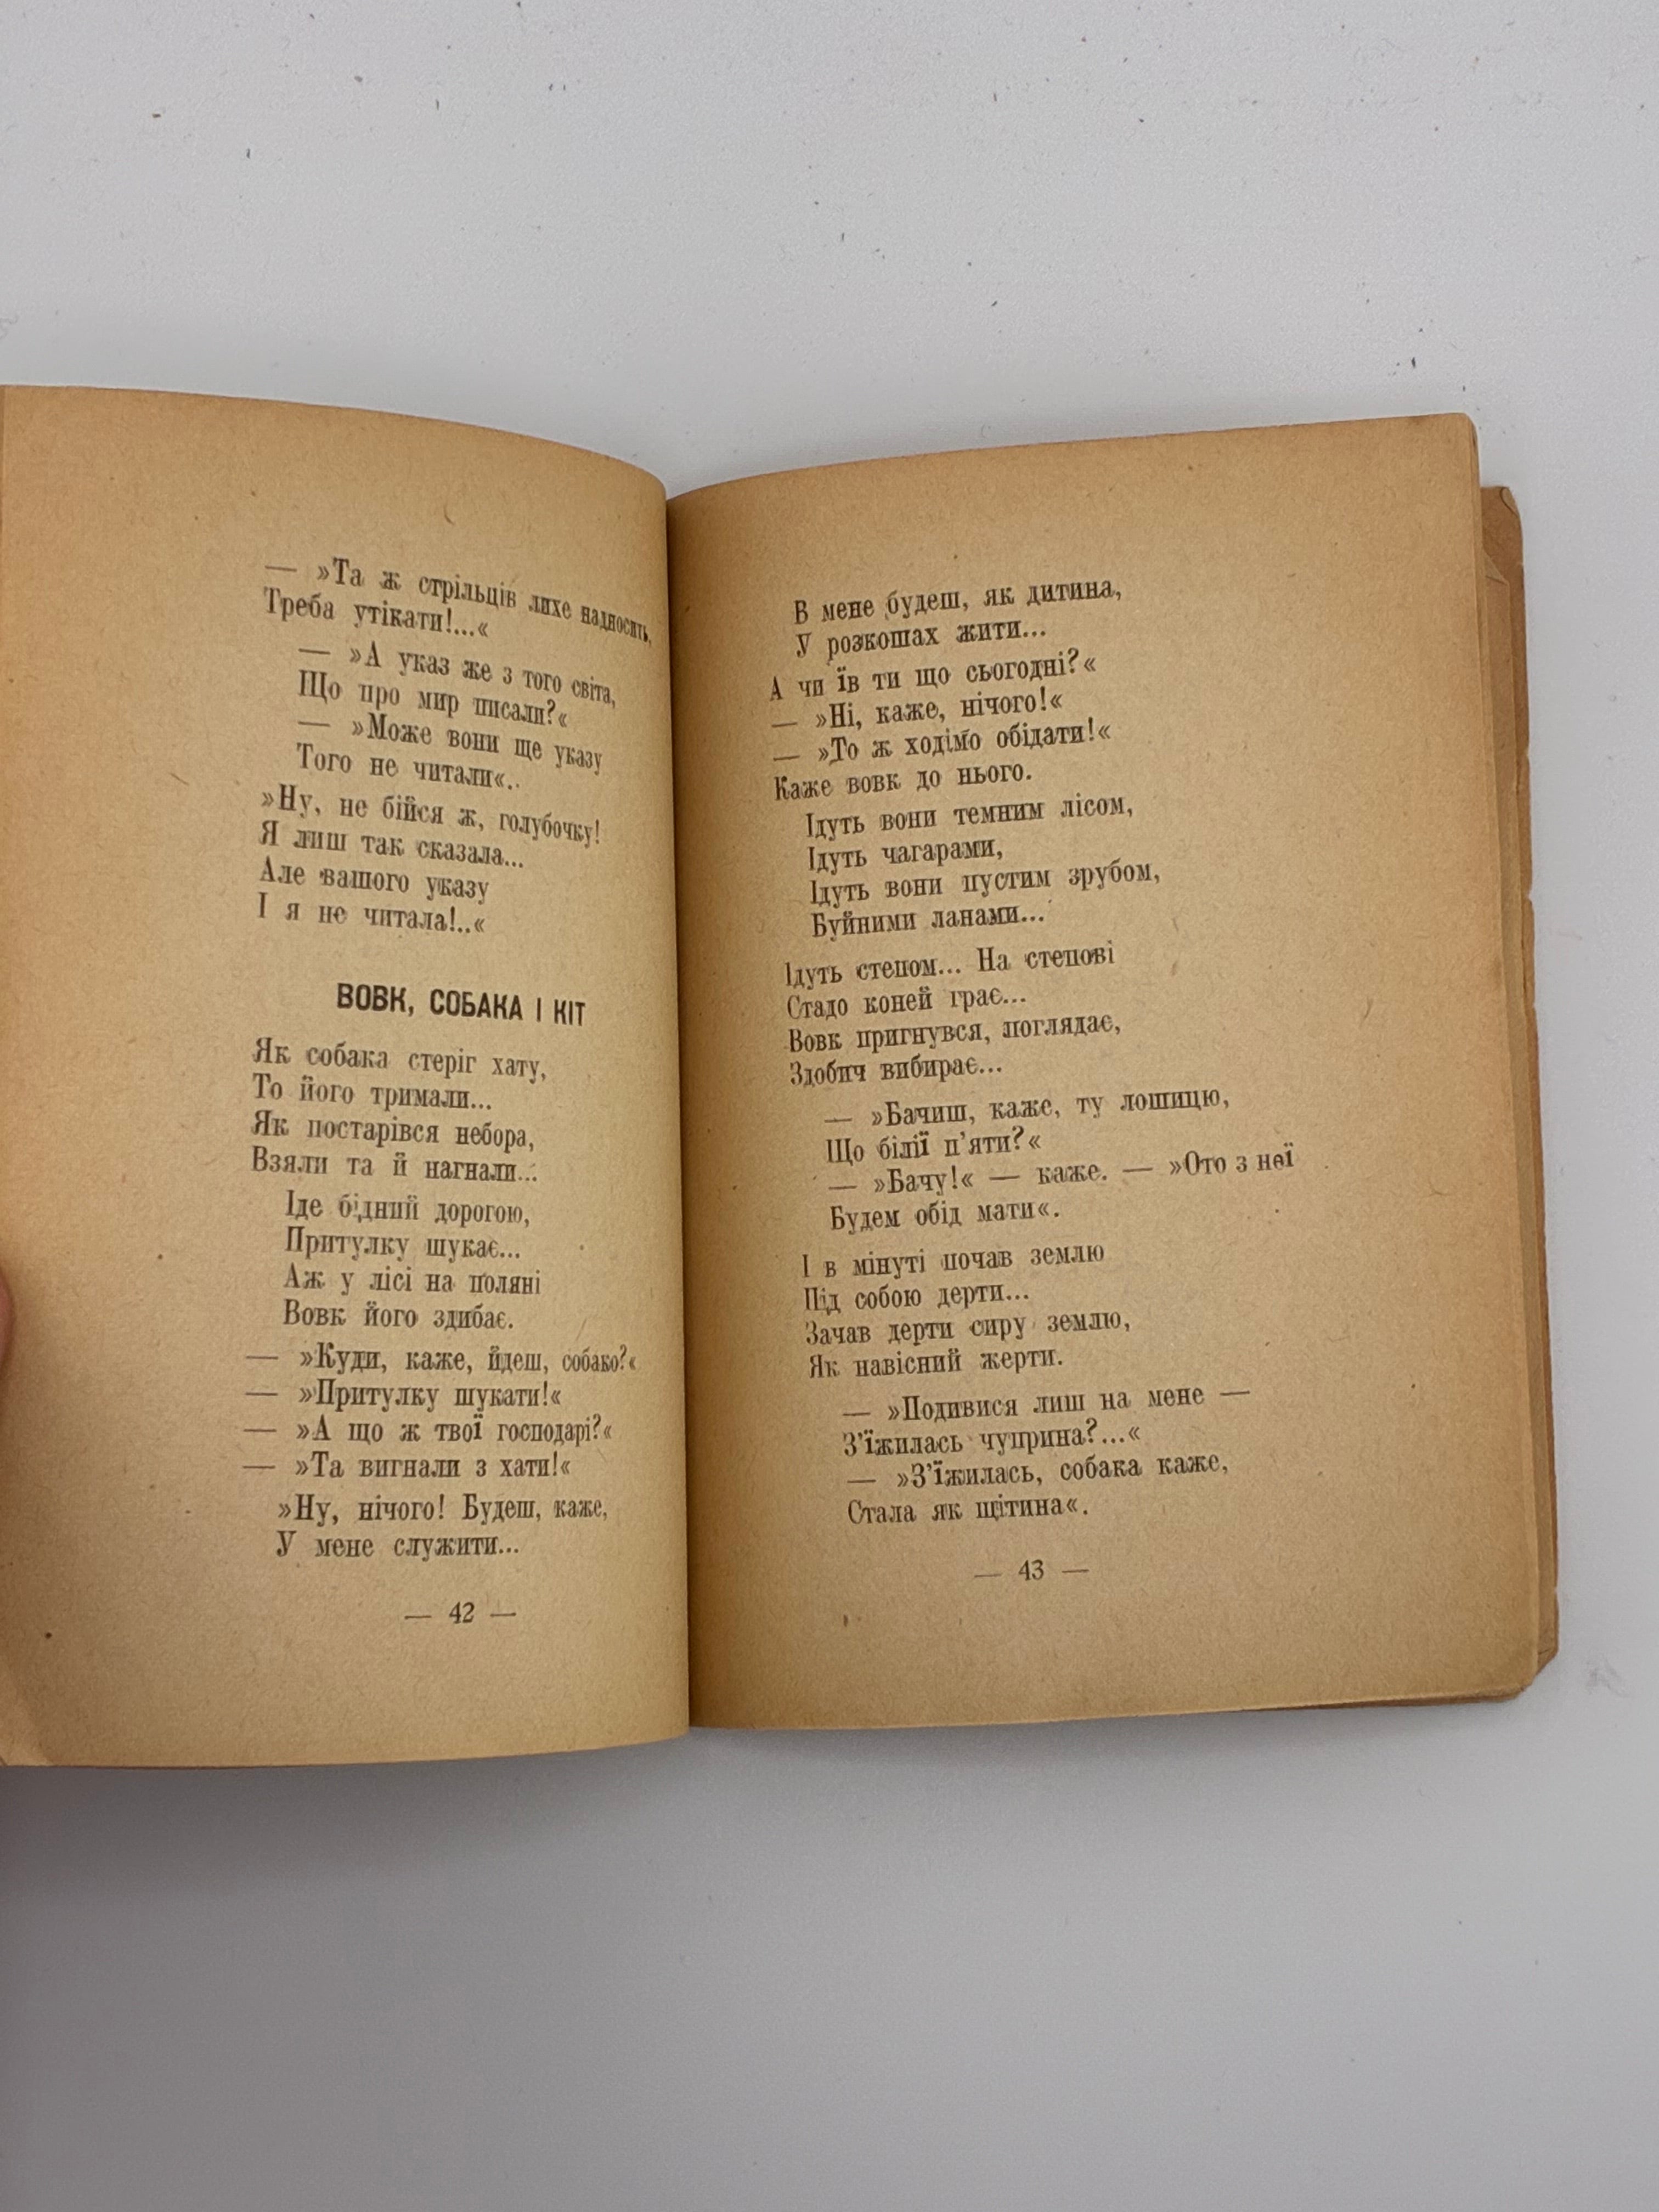 — »Та ж стрільців лихе надносить,
Треба утікати!...«
— »А указ же з того світа,
Що про мир писали?«
— »Може вони ще указу
Того не читали«.
»Ну, не бійся ж, голубочку!
Я лиш так сказала...
Але вашого указу
І я не читала!..«
ВОВК, СОБАКА І КІТ
Як собака стеріг хату,
То його тримали...
Як постарівся небора,
Взяли та й нагнали...
Іде бідний дорогою,
Притулку шукає...
Аж у лісі на поляні
Вовк його здибає.
— »Куди, каже, йдеш, собако?«
— »Притулку шукати!«
— »А що ж твої господарі?«
— »Та вигнали з хати!«
»Ну, нічого! Будеш, каже,
У мене служити...
— 42 —
В мене будеш, як дитина,
У розкошах жити...
А чи їв ти що сьогодні?«
— »Ні, каже, нічого!«
— »То ж ходімо обідати!«
Каже вовк до нього.
Ідуть вони темним лісом,
Ідуть чагарами,
Ідуть вони пустим зрубом,
Буйними ланами...
Ідуть степом... На степові
Стадо коней грає...
Вовк пригнувся, поглядає,
Здобич вибирає...
— »Бачиш, каже, ту лошицю,
Що білії п'яти?«
— »Бачу!« — каже. — »Ото з неї
Будем обід мати«.
І в мінуті почав землю
Під собою дерти...
Зачав дерти сиру землю,
Як навісний жерти.
— »Подивися лиш на мене —
З'їжилась чуприна?...«
— »З'їжилась, собака каже,
Стала як щітина«.
— 43 —